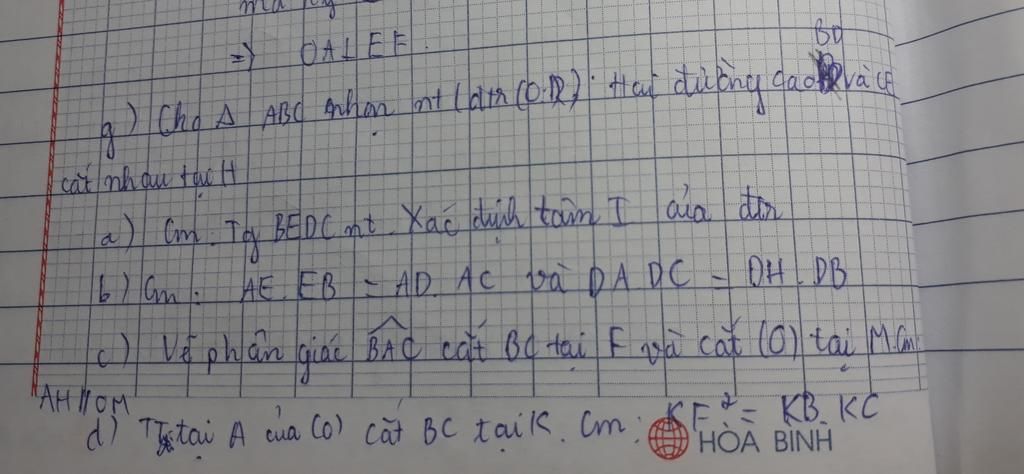 => OA⊥EF.
g) Cho Δ ABC nhọn nt (đtr (O;R). Hai đường cao BD và CE
cắt nhau tại H
a) Cm: Tg BEDC nt. Xác định tâm I của đtr
b) Cm: AE.EB = AD.AC và DA DC = DH.DB
c) Vẽ phân giác BAC cắt BC tại F và cắt (O) tại M. Cm:
AH // OM
d) TT tại A của (O) cắt BC tại K. Cm: KF² = KB.KC
HÒA BINH